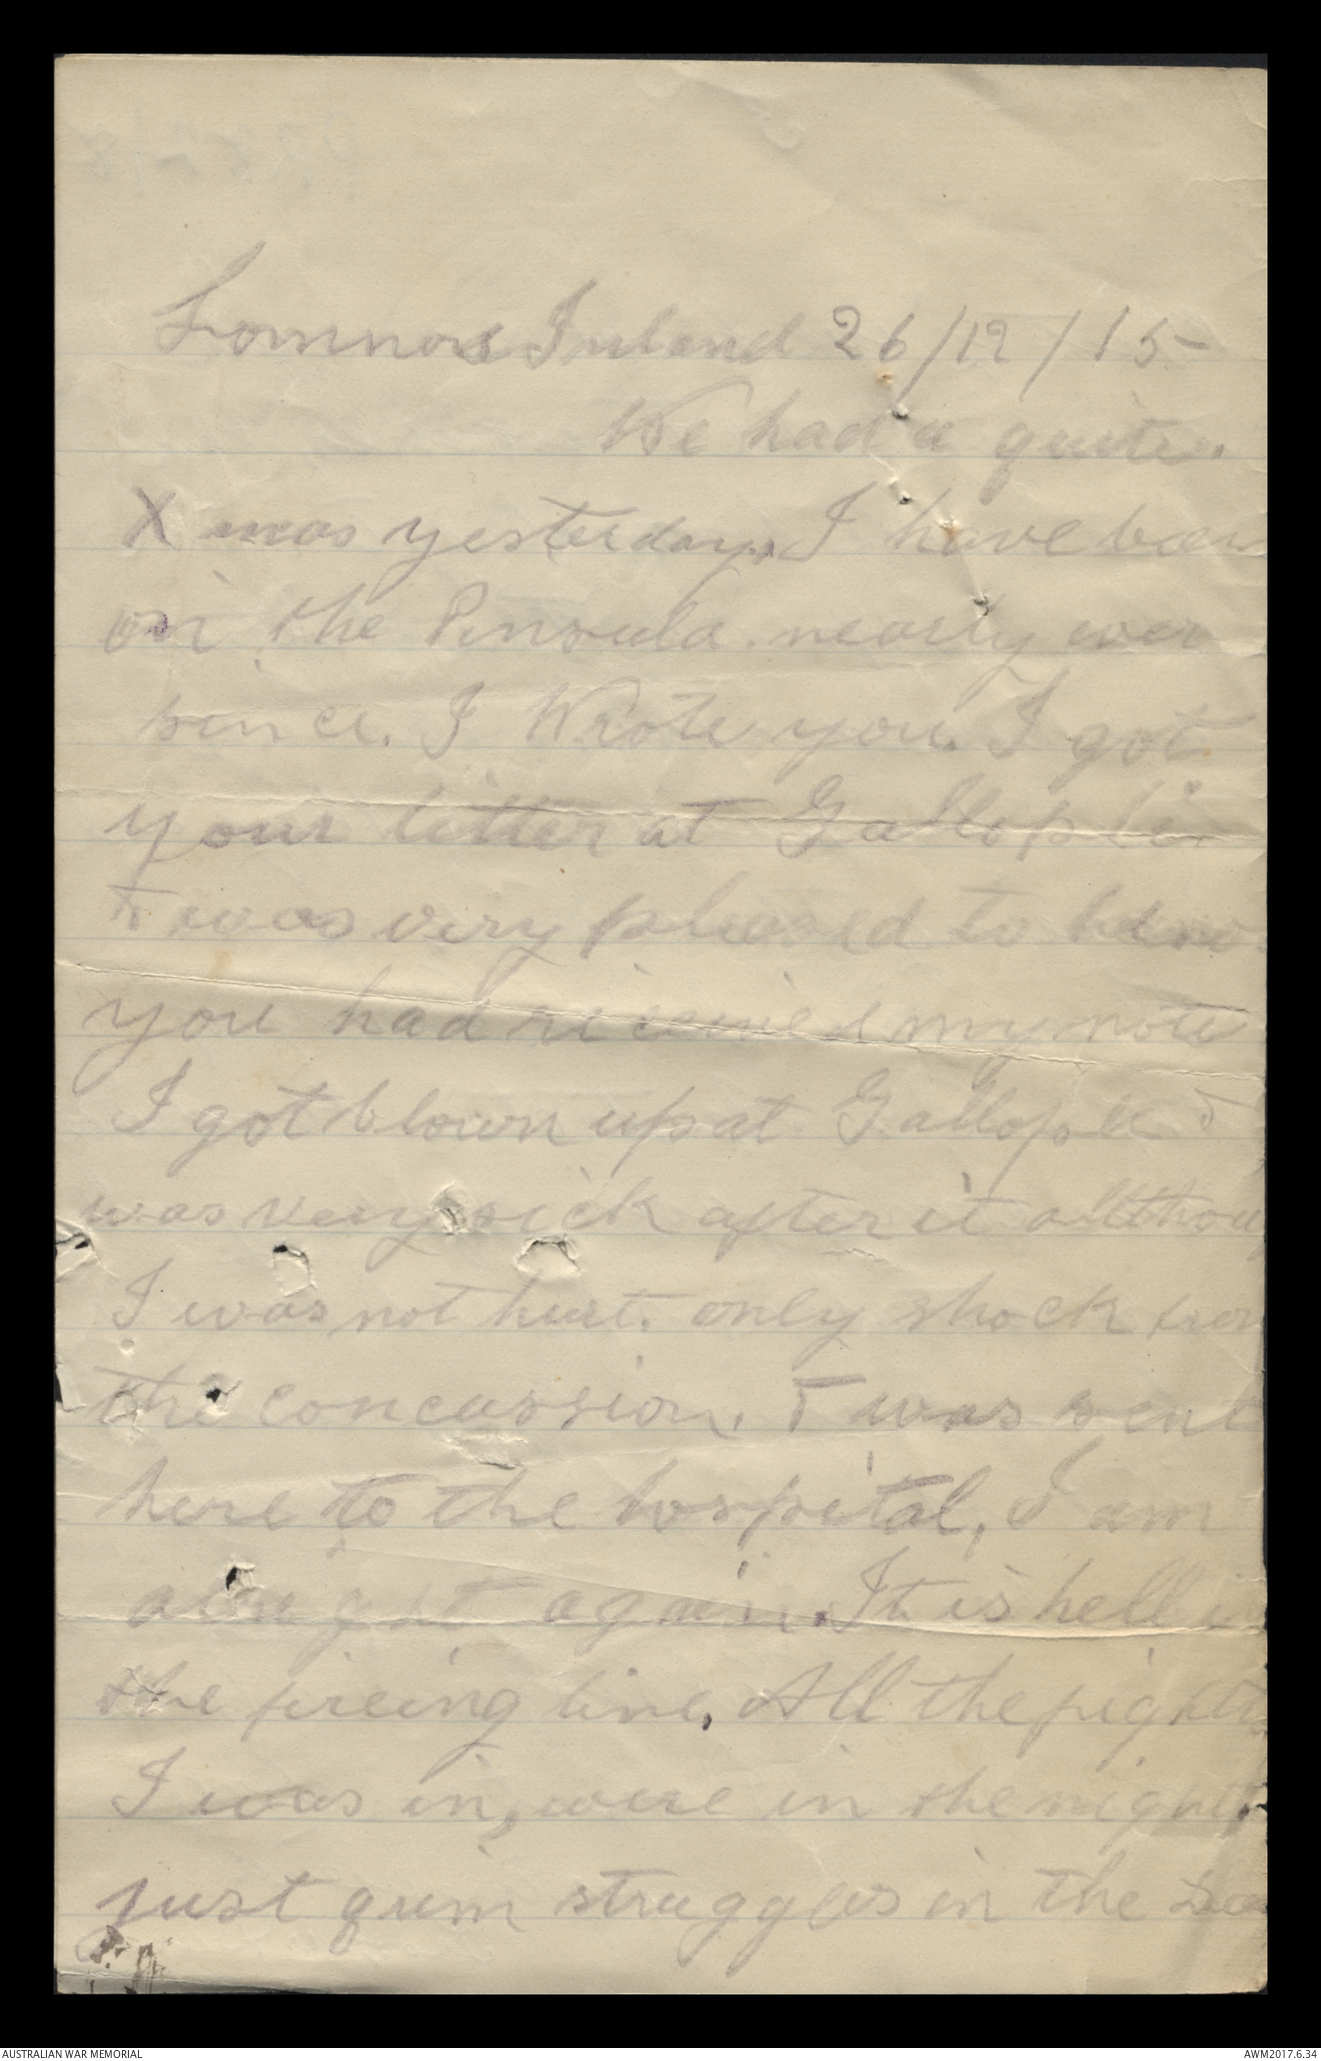 Lomnos Inland 26/12/15-
We had a quite.
Xmas yesterday, I have been
on the Pinsula. nearly ever
since. I Wrote you. I got
your letter at Gallopli
I was very pleased to know
you had received my note
I got blown up at Gallople &
was very sick after it allthou
I was not hurt. only shock from
the concussion. I was sent
here to the hospital, I am
alright again. It is hell in
the fireing line, All the fights
I was in, were in the night,
just grim struggles in the
AUSTRALIAN WAR MEMORIAL
AWM2017.6.34